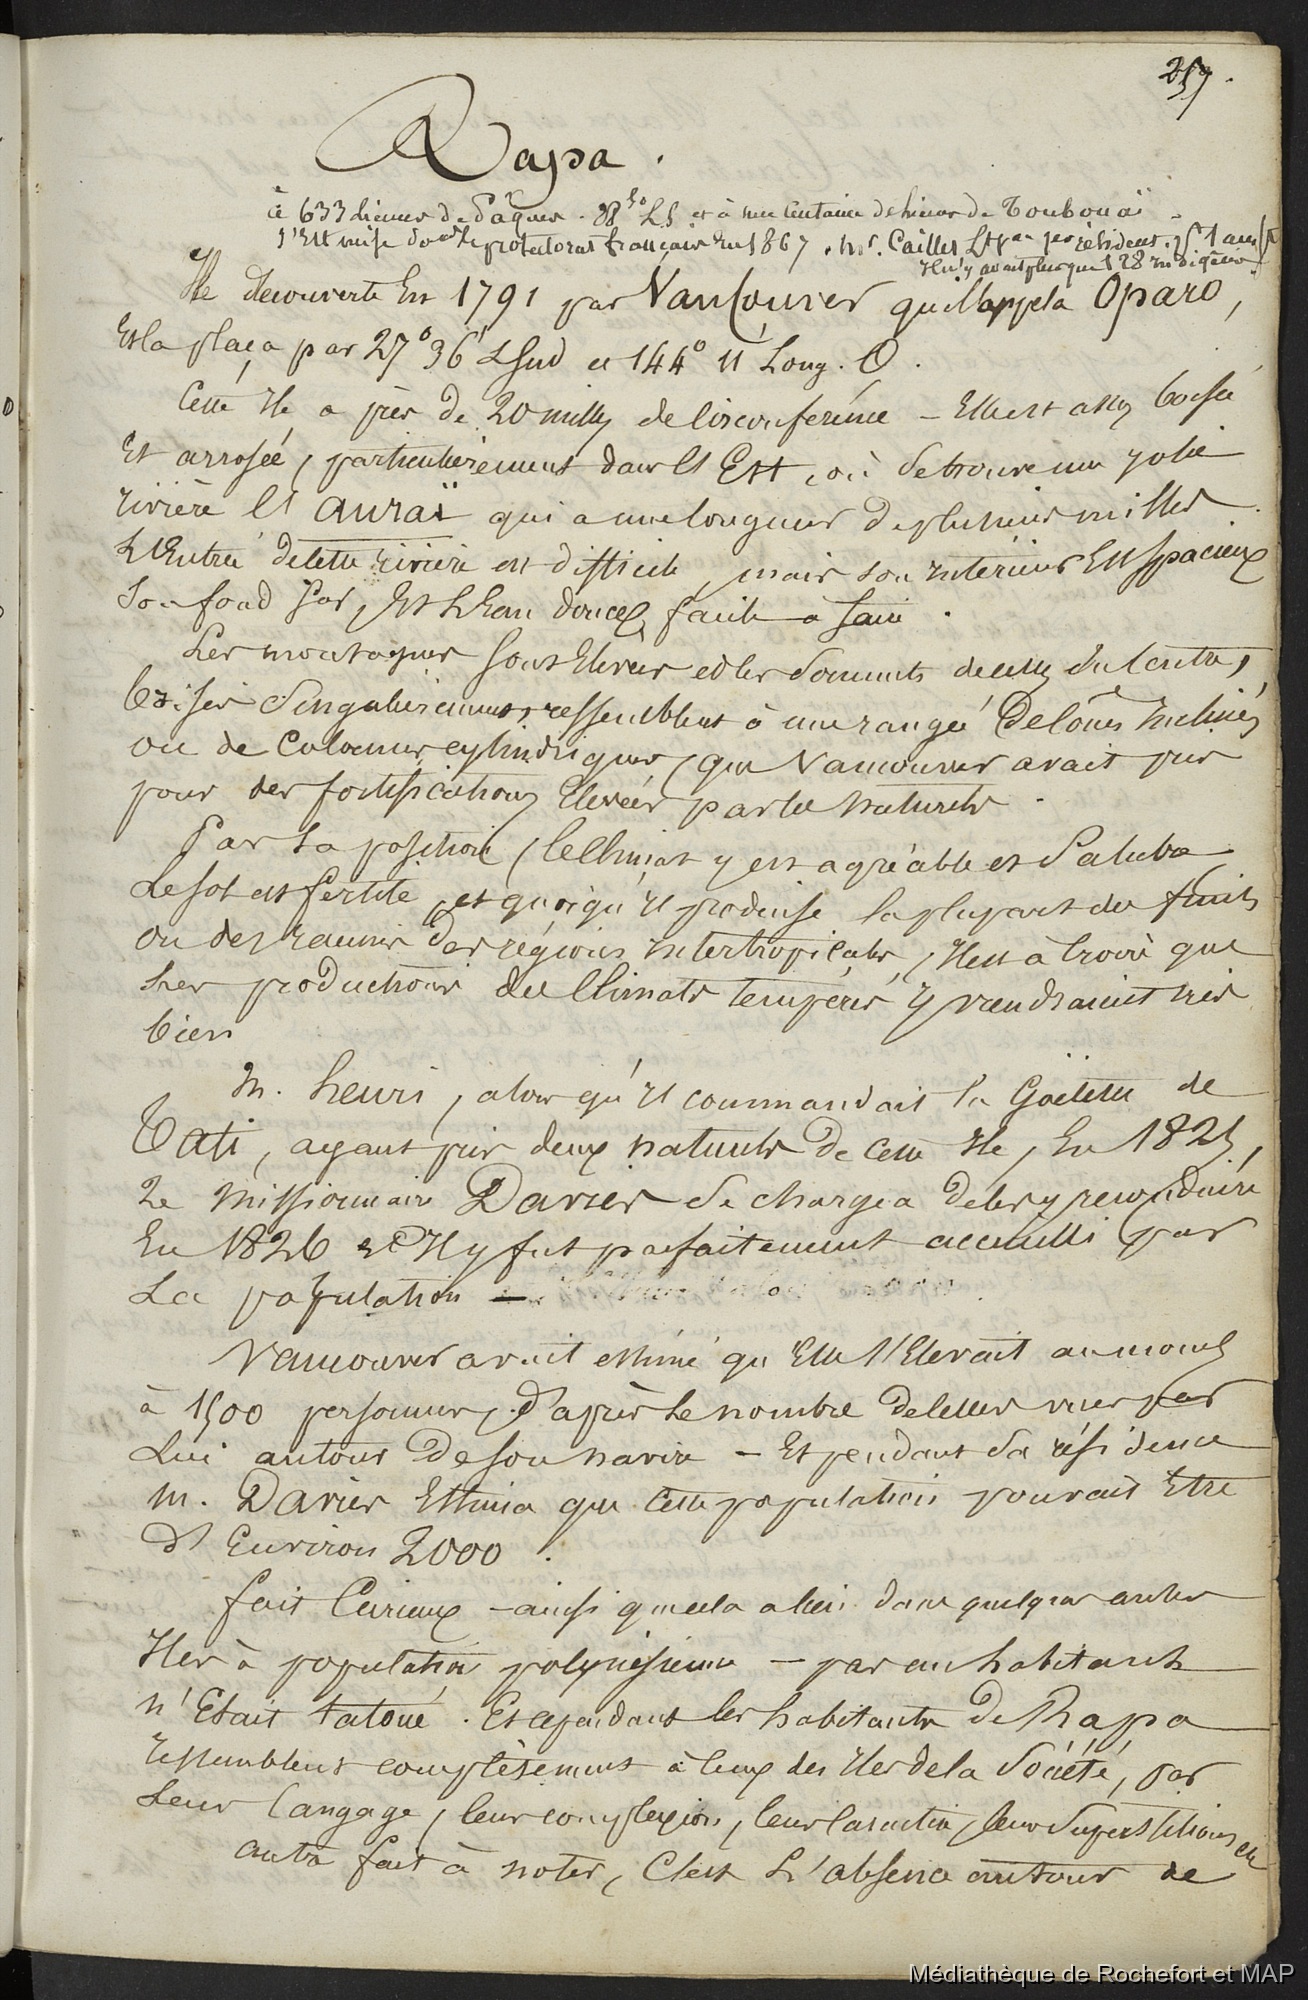 257.
Rapa.
à 633 lieues de Pâques. 28°30 LS et à une Centaine de lieues de Toubouaï.
s'Est mise sous le protectorat français En 1867. Mr. Caillet Lt Vau 1er résident. 1 an
Il n'y avait plus que 128 indigènes.
Ile découverte En 1791 par Vancouver qui l'appela Oparo,
Et la plaça par 27° 36' L Sud et 144° 11' Long. O.
Cette Ile a près de 20 milles de Circonférence - Elle est assez boisée
Et arrosée, particulièrement dans l'Est, où se trouve une jolie
rivière l'auraï qui a une longueur de plusieurs milles.
L'Entrée de cette rivière est difficile, mais son intérieur Est spacieux
Son fond sûr, Et l'Eau douce facile à faire.
Les montagnes sont Elevées et les Sommets de celles du Centre,
brisées Singulièrement, ressemblent à une rangée de Cônes inclinés
ou de Colonnes cylindriques, que Vancouver avait pris
pour des fortifications Elevées par les naturels.
Par sa position, le Climat y est agréable et Salubre
Le sol est fertile, et quoiqu'il produise la plupart des fruits
ou des racines des régions intertropicales, Il est à Croire que
les productions des Climats tempérés y viendraient très
bien
M. henri, alors qu'il commandait la Goëlette de
Tati, ayant pris deux naturels de cette Ile, En 1825,
Le Missionnaire Davies se chargea de les y reconduire
En 1826 et Il y fut parfaitement accueilli par
La population —
Vancouver avait estimé qu'Elle s'Elevait au moins
à 1500 personnes, d'après le nombre de celles vues par
Lui autour de son navire - Et pendant sa résidence
M. Davies Estima que cette population pouvait Etre
d'Environ 2000.
fait Curieux - ainsi que cela a lieu dans quelques autres
Iles à population polynésienne - pas un habitant
n'Etait tatoué. Et cependant les habitants de Rapa
ressemblent complètement à ceux des Iles de la Société, par
Leur Langage, leur complexion, leur Caractère, leurs Superstitions etc
autre fait à noter, C'est L'absence autour de
Médiathèque de Rochefort et MAP